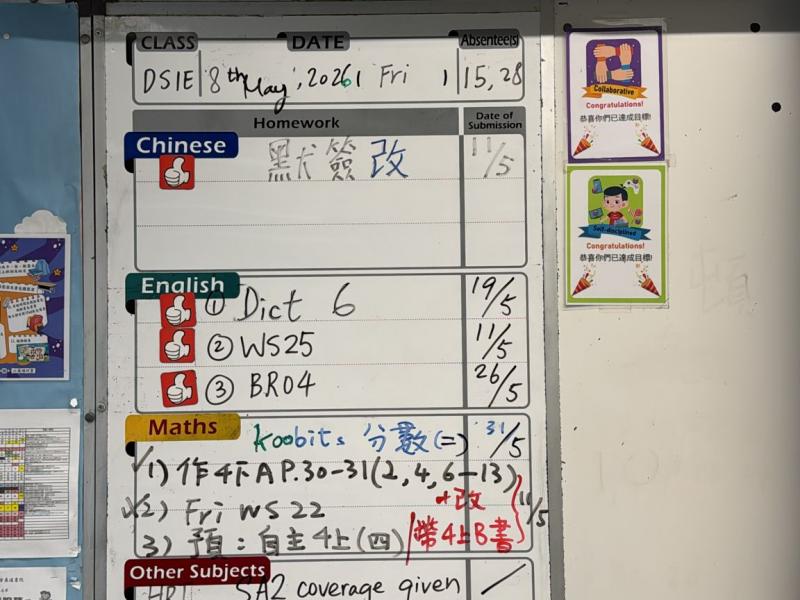 CLASS DATE Absentee(s)
DSIE 8th May, 2026 Fri 15, 28
Homework Date of Submission
Chinese
默 簽 改 11/5
English
① Dict 6 19/5
② WS25 11/5
③ BR04 26/5
Maths
koobits 分數(二) 31/5
1) 作4下A P.30-31(2,4,6-13)
2) Fri WS 22 +改 11/5
3) 預:自主4上(四) 帶4上B書
Other Subjects
SA2 coverage given
Collaborative
Congratulations!
恭喜你們已達成目標!
Self-disciplined
Congratulations!
恭喜你們已達成目標!